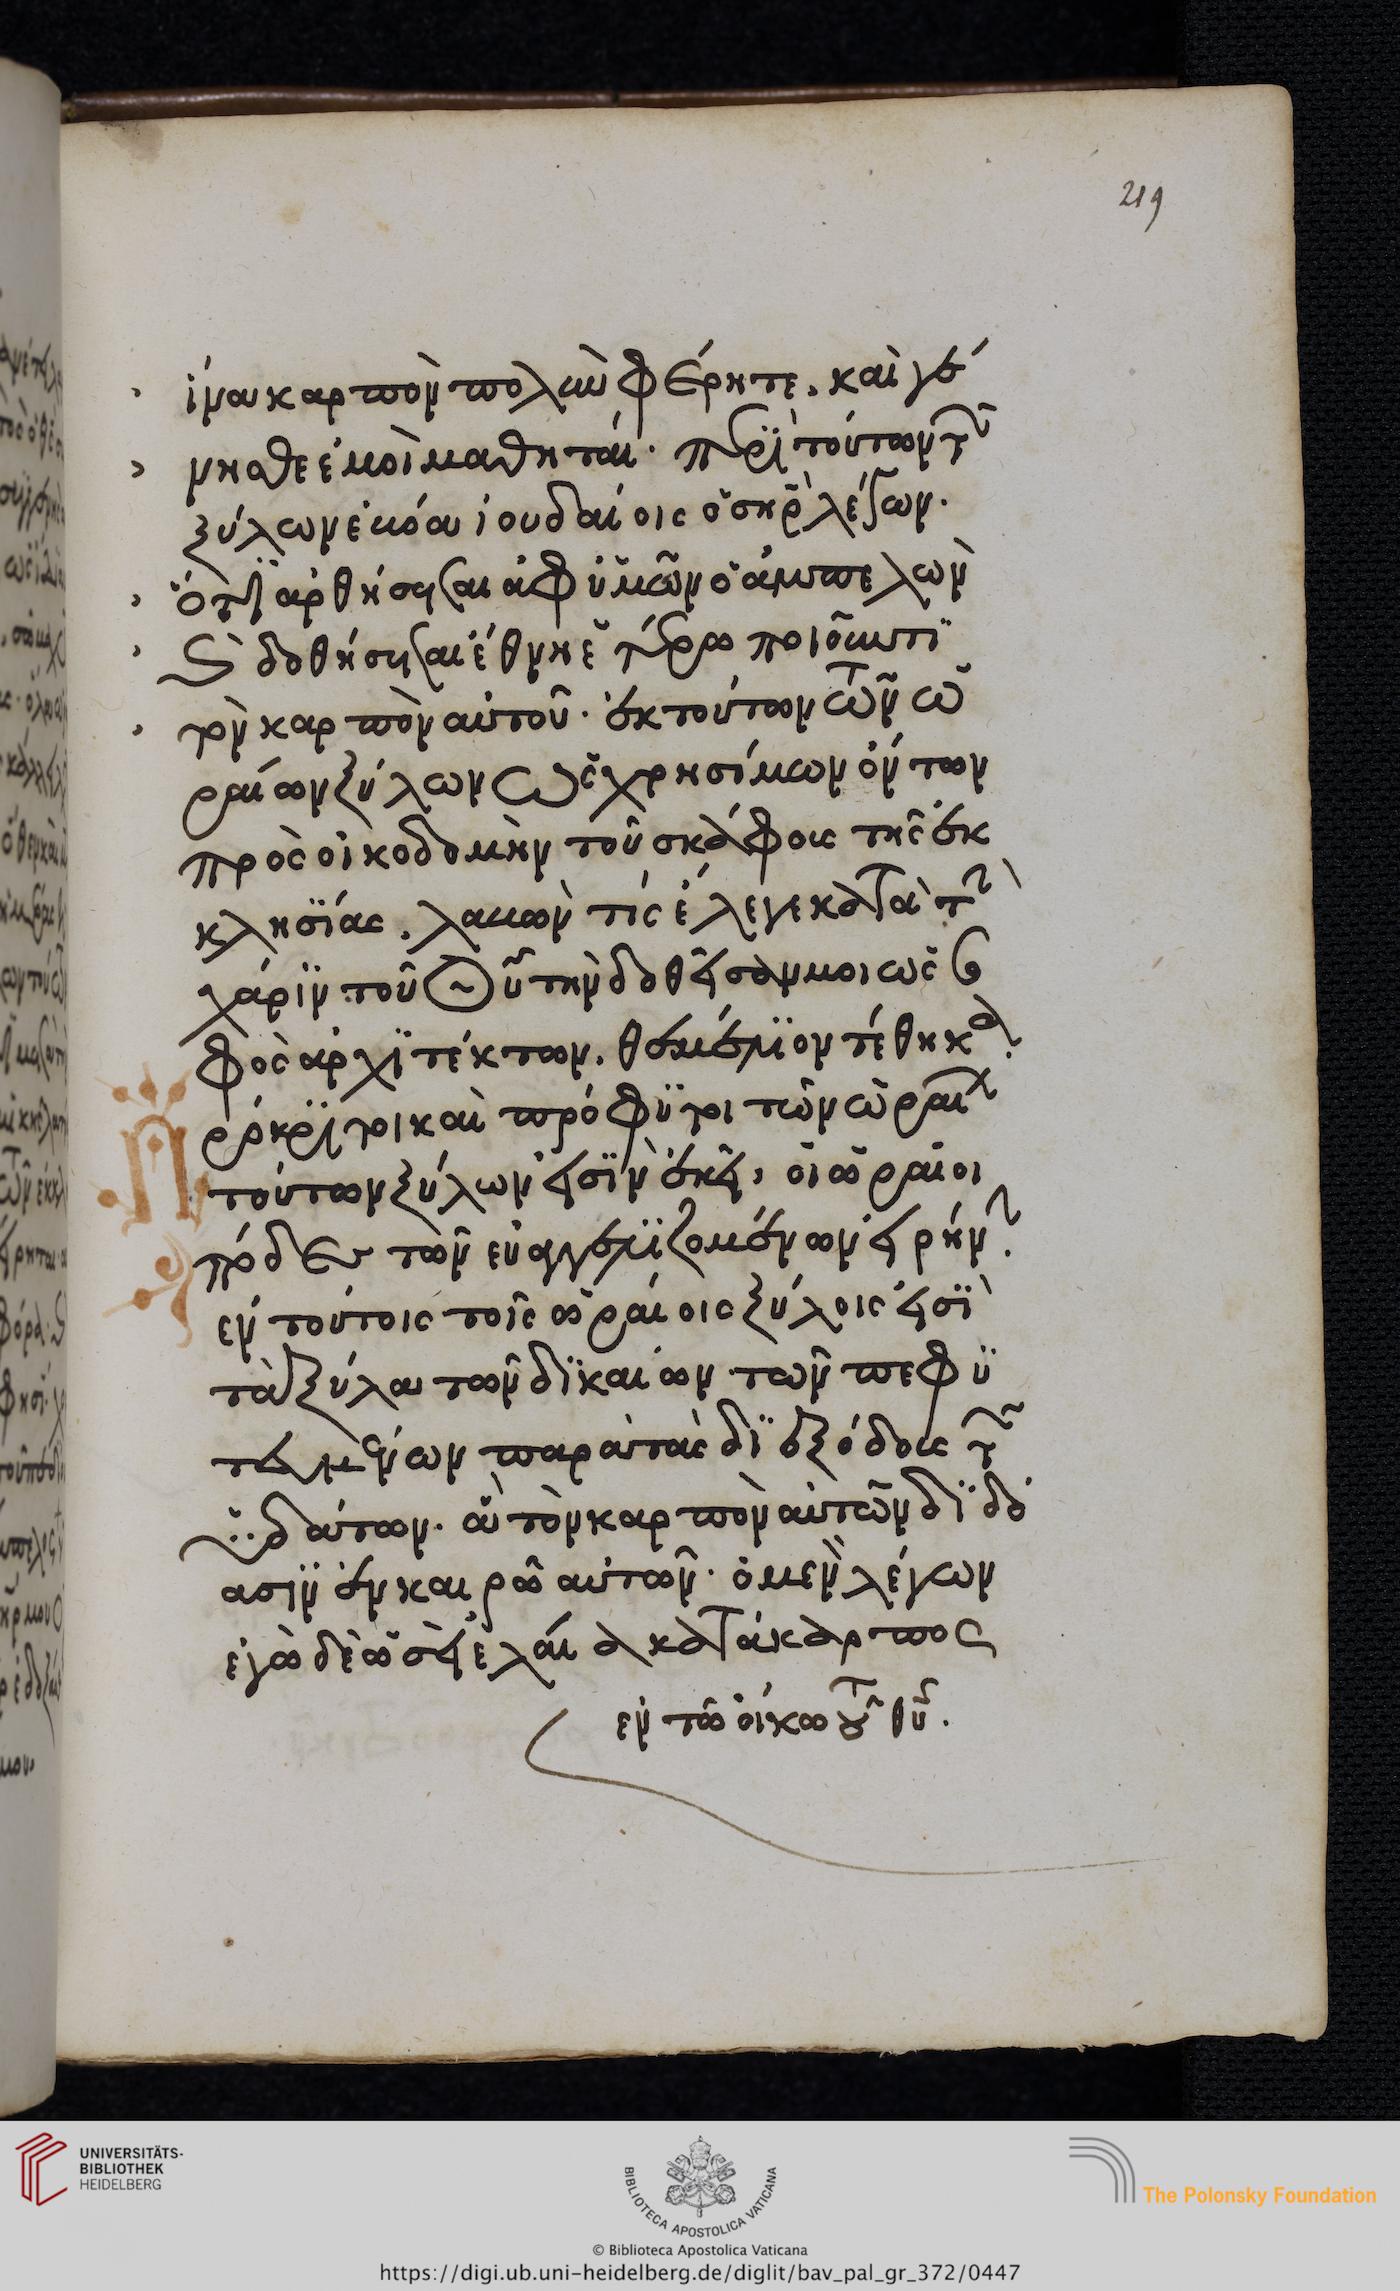 219
ἵνα καρπὸν πολὺν φέρητε, καὶ γέ
νησθε ἐμοὶ μαθηταί. περὶ τούτων τῶν
ξύλων ἐβόα ἰουδαίοις ὁ σωτὴρ λέγων.
ὅτι ἀρθήσεται ἀφ ὑμῶν ὁ ἀμπελὼν
καὶ δοθήσεται ἔθνει ἑτέρω ποιοῦντι
τὸν καρπὸν αὐτοῦ. ἐκ τούτων τῶν ὡ
ραίων ξύλων ὡς χρησίμων ὄντων
πρὸς οἰκοδομὴν τοῦ σκάφους τῆς ἐκ
κλησίας, λαβὼν τίς ἔλεγε κατὰ τὴν
χάριν τοῦ Θῦ τὴν δοθεῖσάν μοι ὡς σο
φὸς ἀρχιτέκτων, θεμέλιον τέθηκα.
εὔκριτοι καὶ πρόφυτοι τῶν ὡραίων
τούτων ξύλων εἰσὶν ἐκεῖ, οἱ ὡραῖοι
πόδες τῶν εὐαγγελιζομένων εἰρήνην.
ἐν τούτοις τοῖς ὡραίοις ξύλοις εἰσὶ
τὰ ξύλα τῶν δικαίων τῶν πεφυ
τευμένων παρὰ τὰς διεξόδους τῶν
ὑδάτων. ἃ τὸν καρπὸν αὐτῶν διδό
ασιν ἐν καιρῶ αὐτῶν. ὁ μὲν λέγων
ἐγὼ δὲ ὡσεὶ ἐλαία κατάκαρπος
ἐν τῶ οἴκω τοῦ θῦ.
UNIVERSITÄTS-
BIBLIOTHEK
HEIDELBERG
BIBLIOTECA APOSTOLICA VATICANA
The Polonsky Foundation
© Biblioteca Apostolica Vaticana
https://digi.ub.uni-heidelberg.de/diglit/bav_pal_gr_372/0447